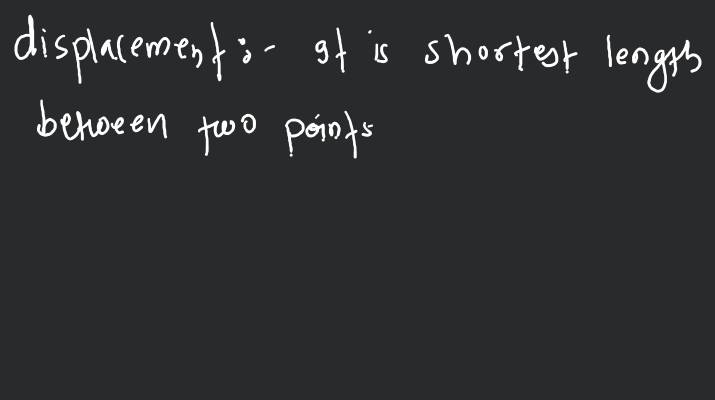 displacement :- It is shortest length
between two points